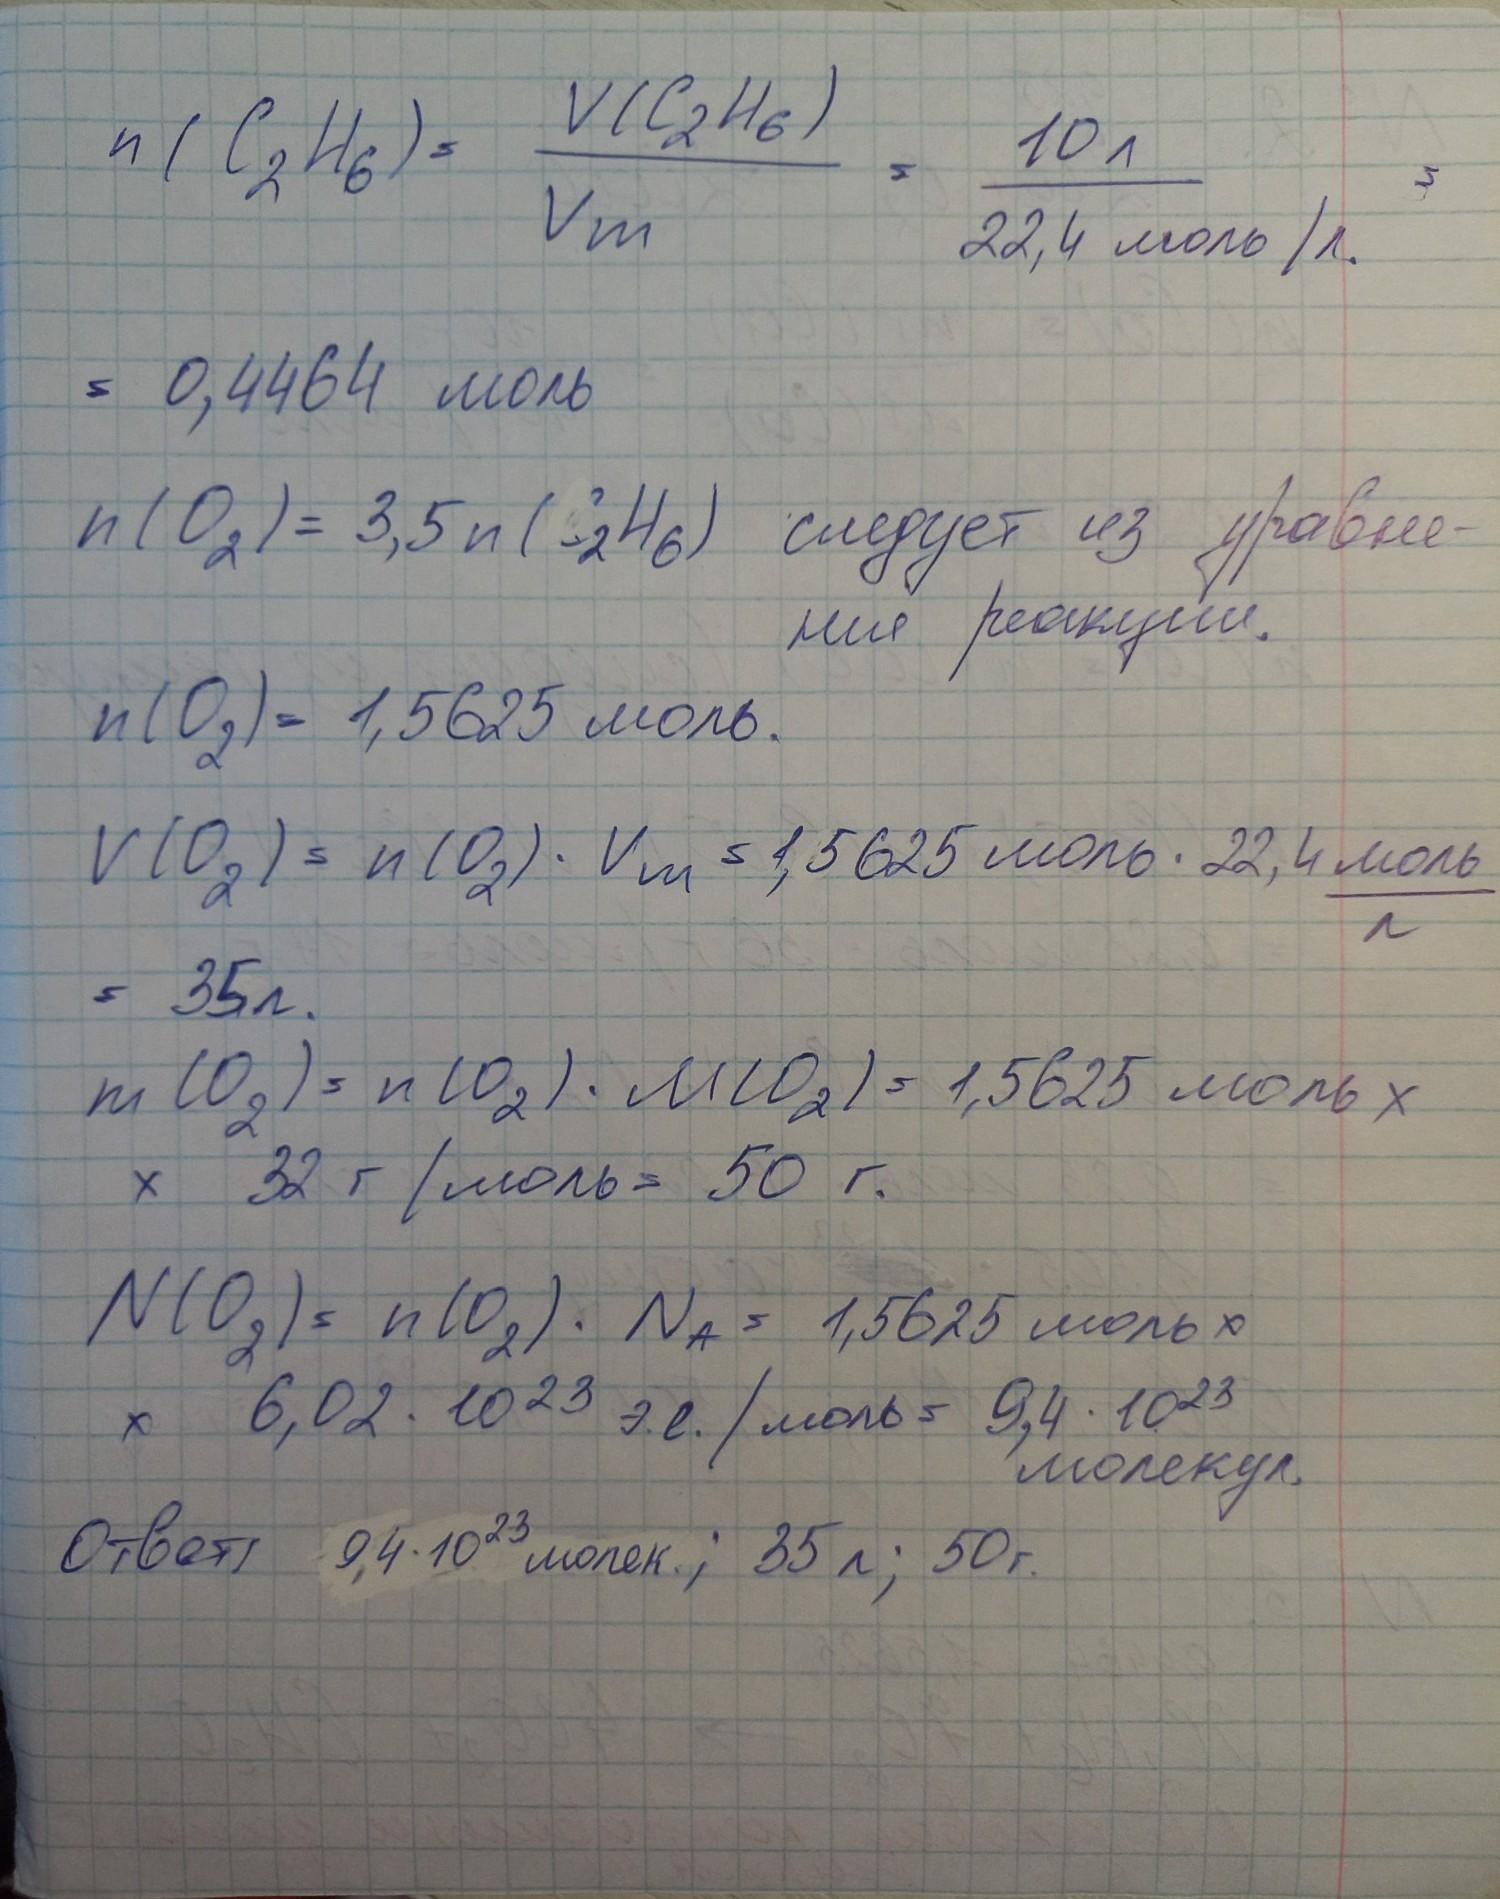 n(C₂H₆) = V(C₂H₆) / Vm = 10 л / 22,4 моль/л. =
= 0,4464 моль
n(O₂) = 3,5 n(C₂H₆) следует из уравне-
ния реакции.
n(O₂) = 1,5625 моль.
V(O₂) = n(O₂) · Vm = 1,5625 моль · 22,4 моль/л
= 35 л.
m(O₂) = n(O₂) · M(O₂) = 1,5625 моль x
x 32 г/моль = 50 г.
N(O₂) = n(O₂) · N_A = 1,5625 моль x
x 6,02 · 10²³ э.е./моль = 9,4 · 10²³
молекул.
Ответ: 9,4 · 10²³ молек.; 35 л; 50 г.